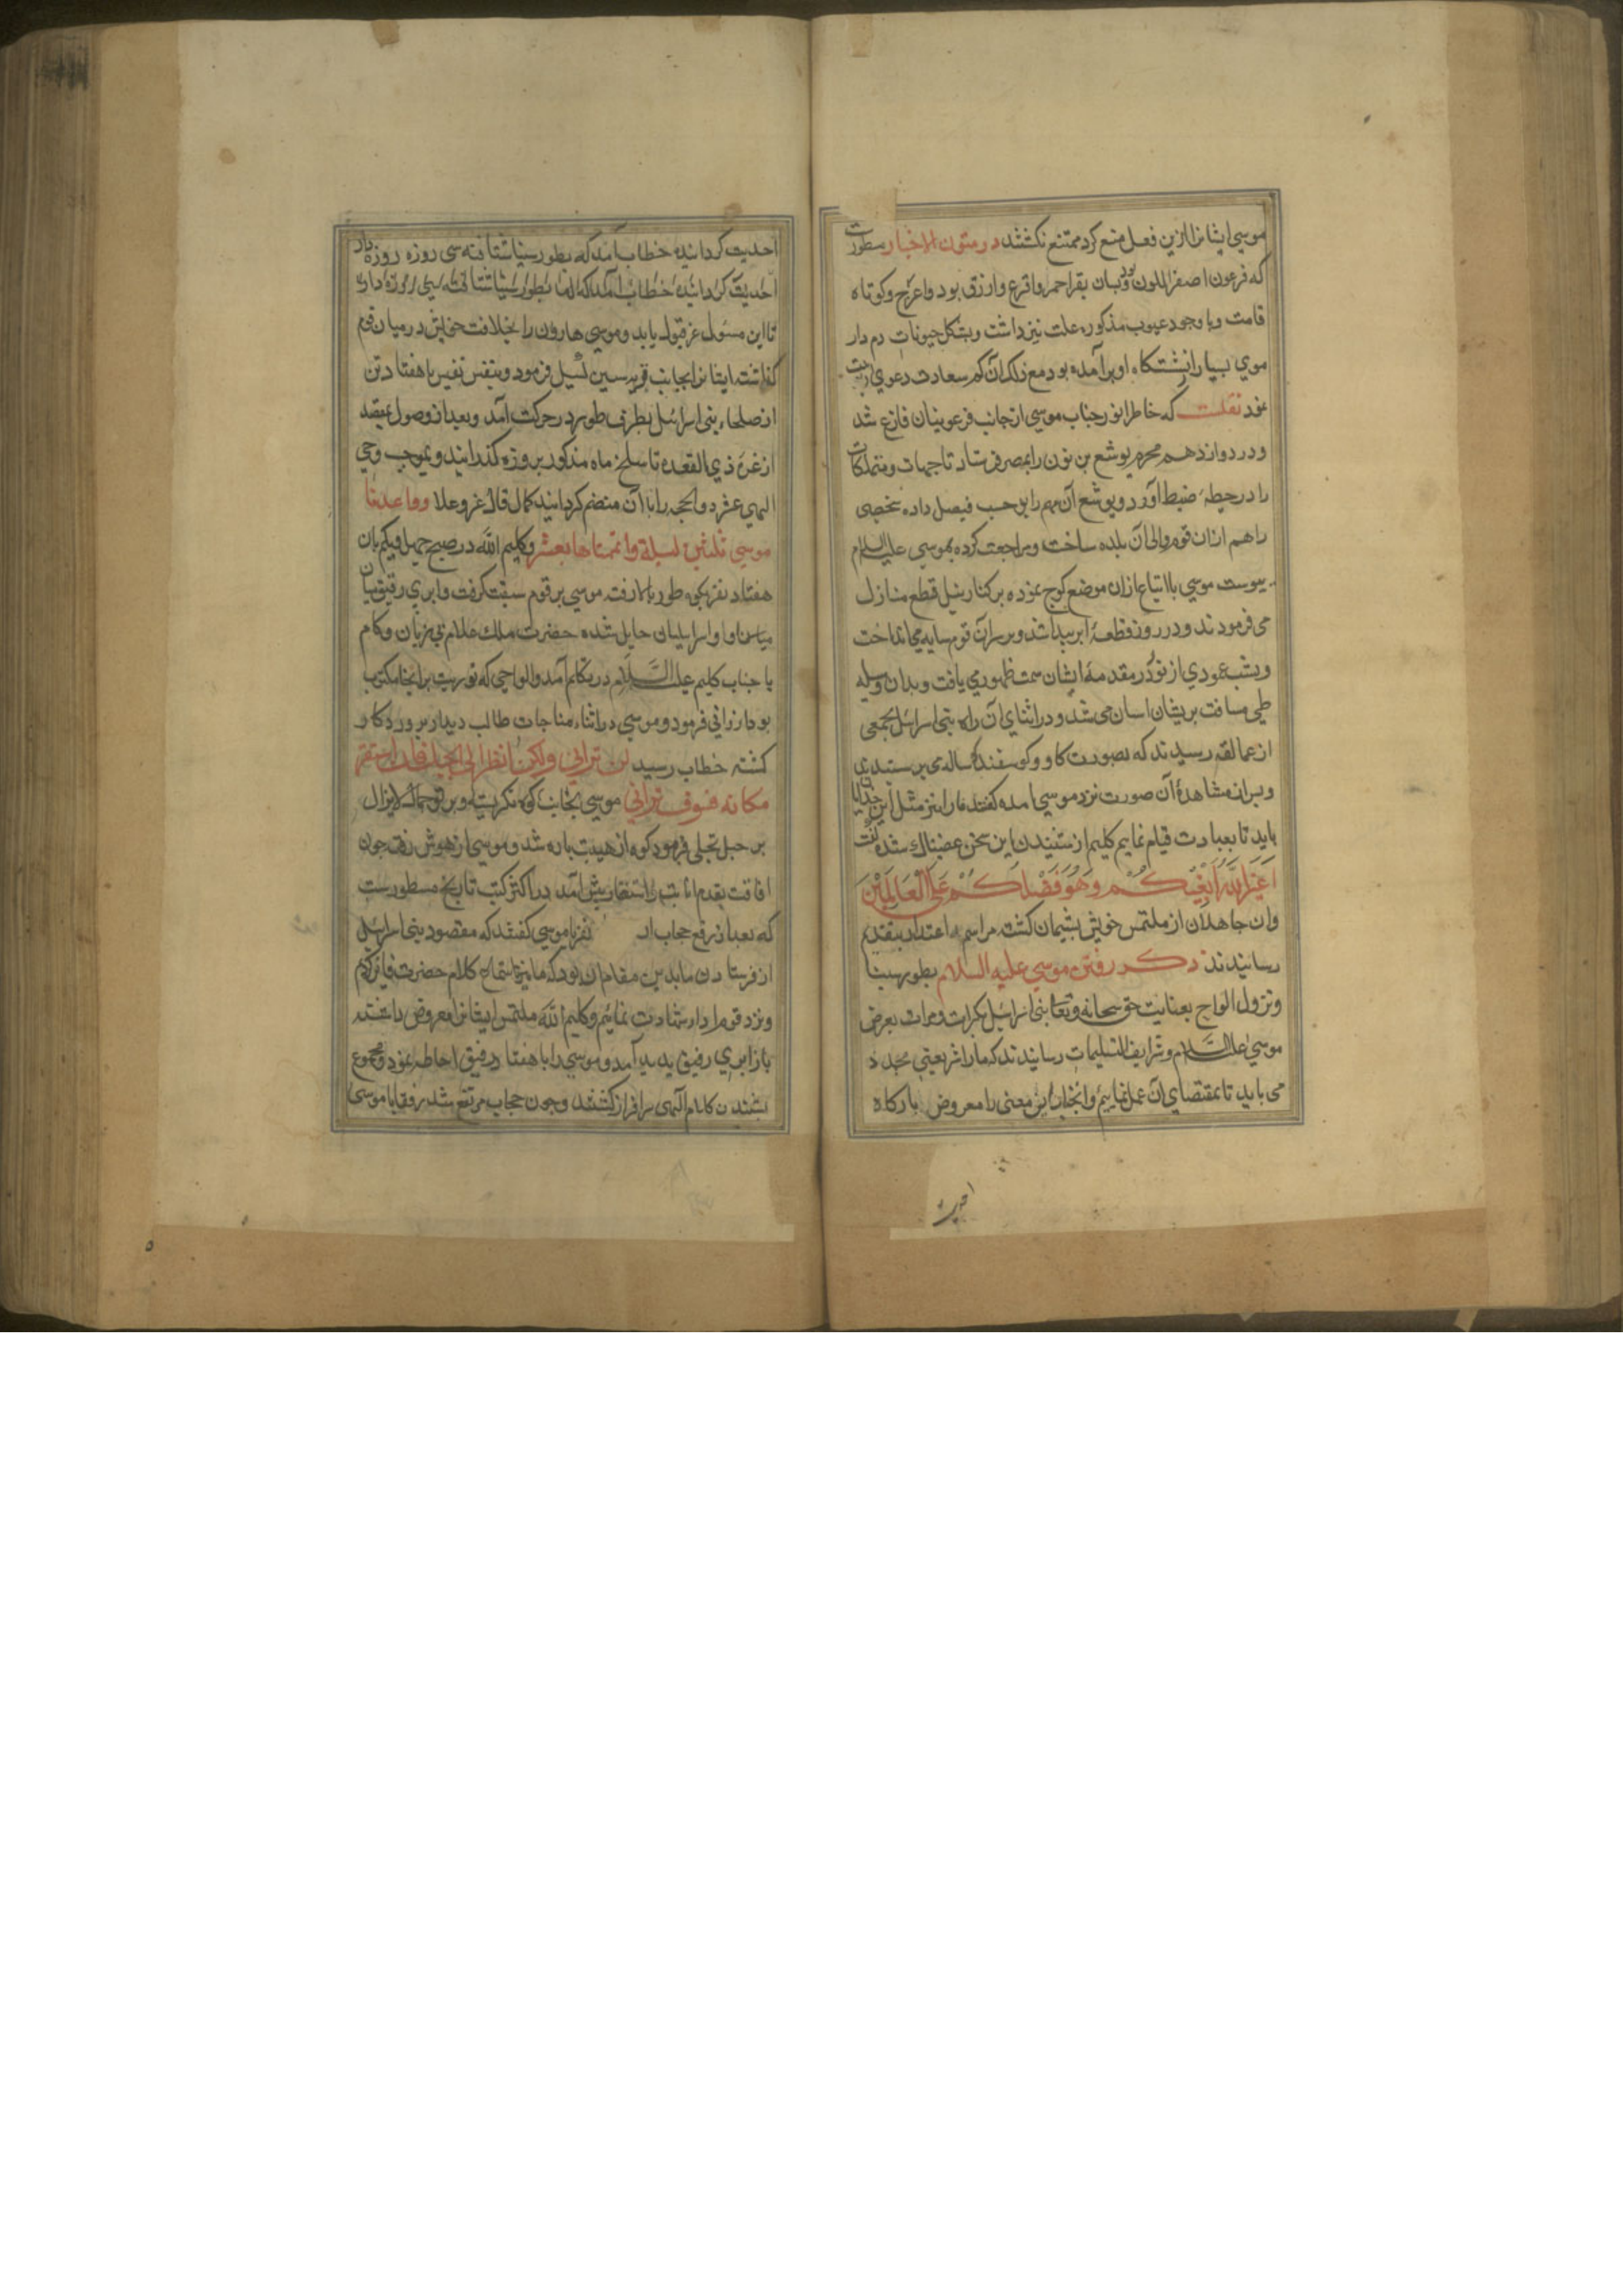 موسی ایشانرا ازین فعل منع کرد ممتنع نکشتند در متون الاخبار مسطورست
که فرعون اصفر اللون بود بسان بقر احمر واقرع وازرق بود واعرج وکوتاه
قامت وبا وجود عیوب مذکوره علت نیز داشت وبشکل حیونات دم دار
موی بسیار از نشستکاه او برآمده بود مع ذلک آن کم سعادت دعوی
نمود نقلست که خاطر انور جناب موسی از جانب فرعونیان فارغ شد
ودر دوازدهم محرم یوشع بن نون را بمصر فرستاد تا جهات ومتملکات
را در حیطه ضبط آورد ویوشع آن مهم را بر حسب فیصل داده شخصی
را هم ازان قوم والی آن بلده ساخت ومراجعت کرده بموسی علیه السلام
پیوست موسی با اتباع ازان موضع کوچ نموده بر کنار نیل قطع منازل
می فرمودند ودر روز قطعهٔ ابر پیدا شد وبر سر آن قوم سایه می انداخت
وبشب عمودی از نور در مقدمهٔ ایشان سمت ظهور می یافت وبدان وسیله
طی مسافت بریشان اسان می شد ودر اثنای آن راه بنی اسرائیل بجمعی
از عمالقه رسیدند که بصورت کاو وکوسفند کوساله می پرستیدند
وبران مشاهدهٔ آن صورت نزد موسی امده کفتند ما را نیز مثل این خدایان
باید تا بعبادت قیام نماییم کلیم از شنیدن این سخن غضبناک شده کفت
اغیر الله ابغیکم وهو فضلکم علی العالمین
وان جاهلان از ملتمس خویش پشیمان کشته مراسم اعتذار بتقدیم
رسانیدند ذکر رفتن موسی علیه السلام بطور سینا
ونزول الواح بعنایت حق سبحانه وتعا بنی اسرائیل بکرات ومرات بعرض
موسی علیه السلام وشرایف التسلیمات رسانیدند که ما را شریعتی مجدد
می باید تا بمقتضای آن عمل نماییم وانجناب این معنی را معروض بارکاه
احدیت
احدیت کردانیده خطاب آمد که بطور سینا شتافته سی روزه روزه دار
احدیت کردانیده خطاب آمد که بطور سینا شتافته سی روزه دار
تا این مسئول عز قبول یابد وموسی هارون را بخلافت خویش در میان قوم
کذاشته ایشانرا بجانب تسیل فرمود وبنفس نفیس با هفتاد تن
از صلحاء بنی اسرائیل بطرف طور در حرکت آمد وبعد از وصول بمقصد
از غره ذی القعده تا سلخ ماه مذکور بروزه کذرانید وبموجب وحی
الهی عشر ذو الحجه را با آن منضم کردانید کما قال عز وعلا وواعدنا
موسی ثلثین لیلة واتممناها بعشر وکلیم الله در صبح با آن
هفتاد نفر بکوه طور بالا رفته موسی بر قوم سبقت کرفت وابری رقیق میان
میان او واسرایلیان حایل شده حضرت ملک علام بی زبان وکام
با جناب کلیم علیه السلام در تکلم آمد والواحی که توریت بر انجا مکتوب
بود ارزانی فرمود وموسی در اثناء مناجات طالب دیدار پروردکار
کشته خطاب رسید لن ترانی ولکن انظر الی الجبل فان استقر
مکانه فسوف ترانی موسی بجانب کوه نکریسته وپرتو جمال لایزال
بر جبل تجلی فرمود کوه از هیبت پاره شد وموسی از هوش رفت چون
افاقت بقدم انابت واستغفار پیش آمد در اکثر کتب تاریخ مسطورست
که بعد از رفع حجاب ان نفر با موسی کفتند که مقصود بنی اسرائیل
از فرستادن ما بدین مقام ان بود که ما نیز استماع کلام حضرت کرده
ونزد قوم ادا شهادت نمائیم وکلیم الله ملتمس ایشانرا معروض داشته
باز ابری رقیق پدید آمد وموسی را با هفتاد رفیق احاطه نمود ومجموع
بشنیدن کلام الهی سرافراز کشتند وچون حجاب مرتفع شد رفقا با موسی